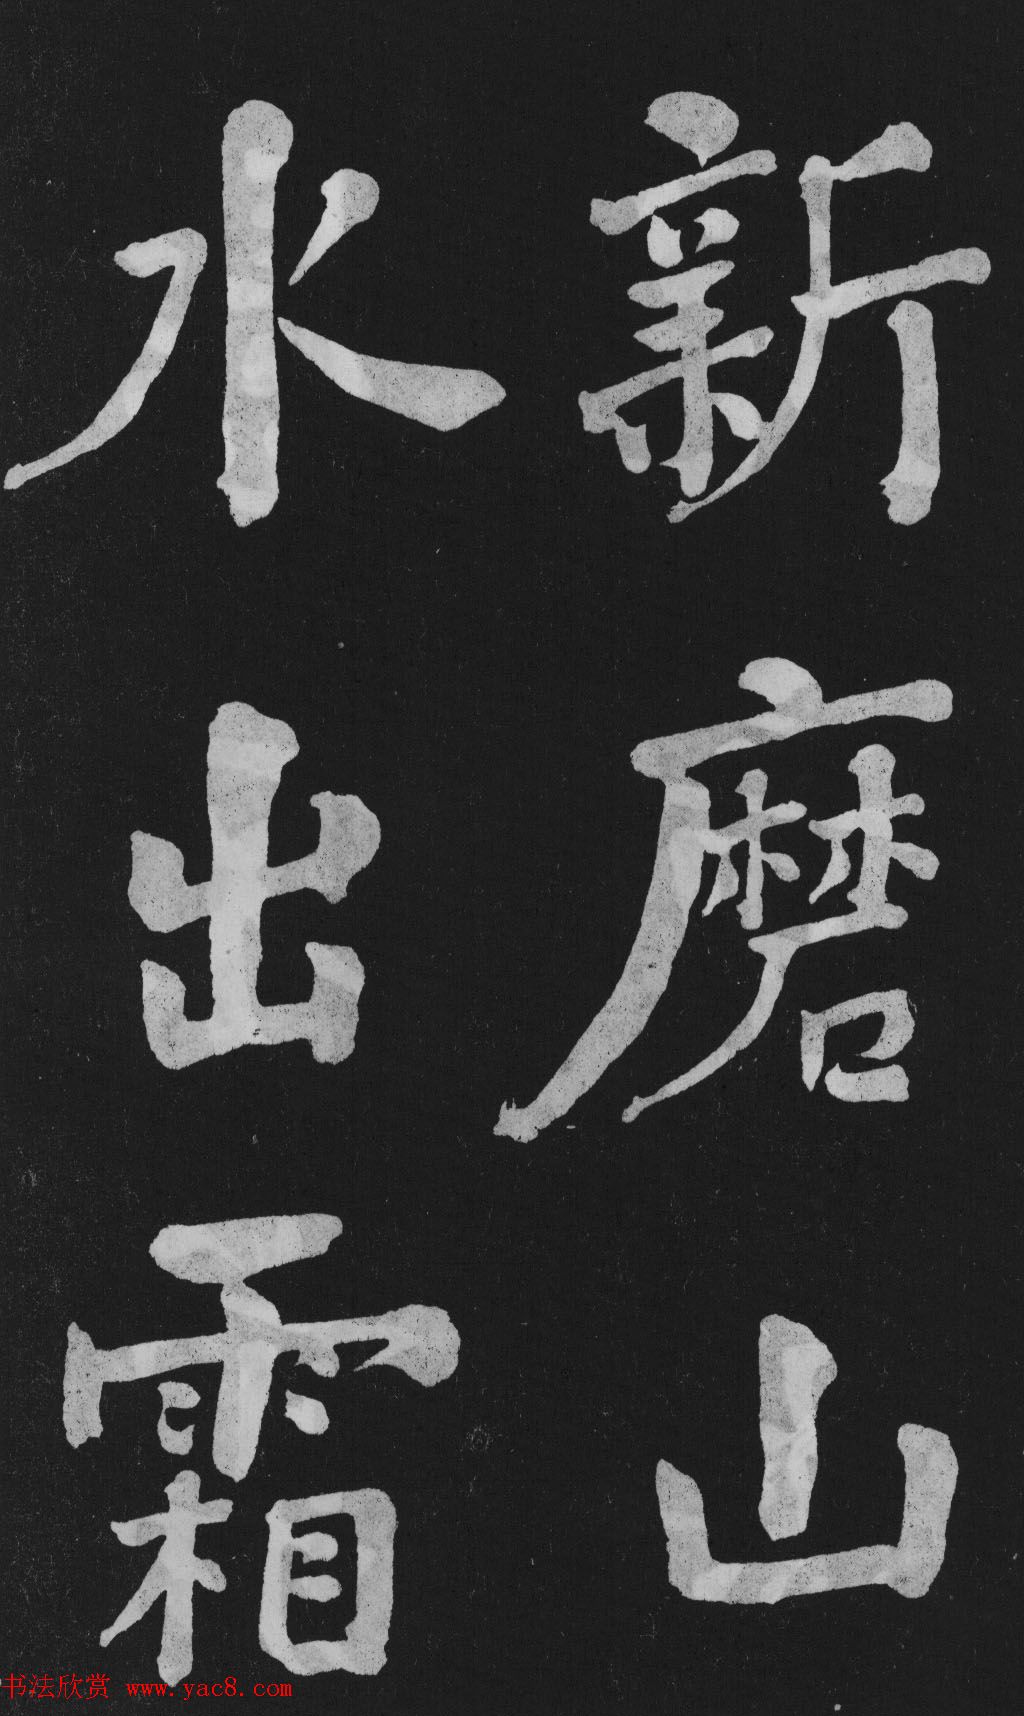 新磨山
水出霜
书法欣赏 www.yac8.com